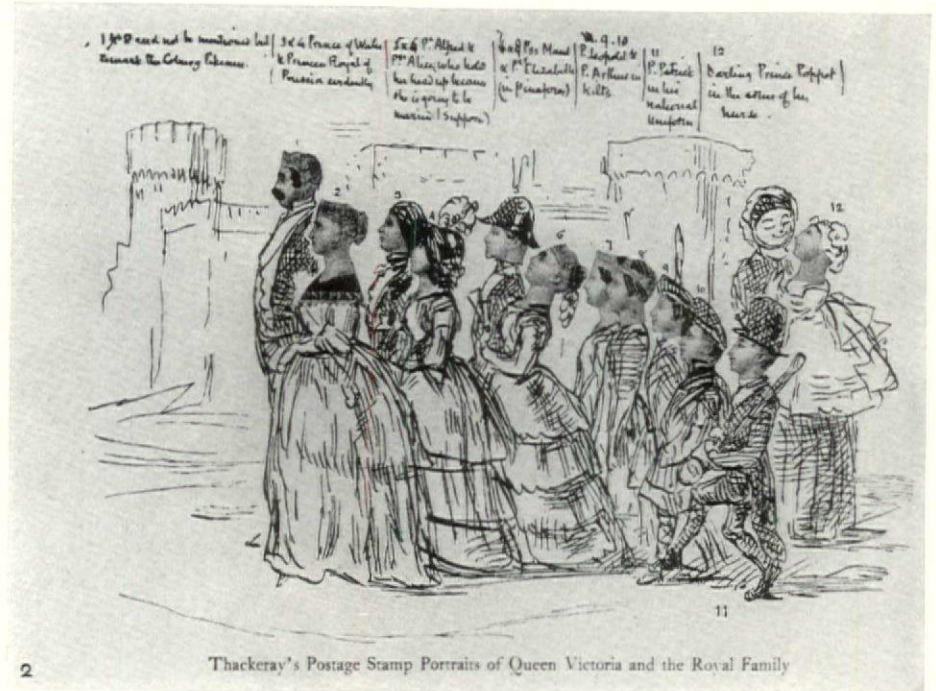 1 & 2 need not be mentioned but
remark the Coburg
3 & 4 Prince of Wales
& Princess Royal of
Prussia evidently
5 & 6 Pce Alfred &
Pss Alice, who holds
her head up because
she is going to be
married (I suppose)
7 & 8 Pss Maud
& Pss Elizabeth
(in pinafores)
9. 10
P. Leopold &
P. Arthur in
kilts
11
P. Patrick
in his
national
uniform
12
Darling Prince Poppet
in the arms of his
nurse.
1
2
3
4
5
6
7
8
9
10
12
11
2
Thackeray's Postage Stamp Portraits of Queen Victoria and the Royal Family